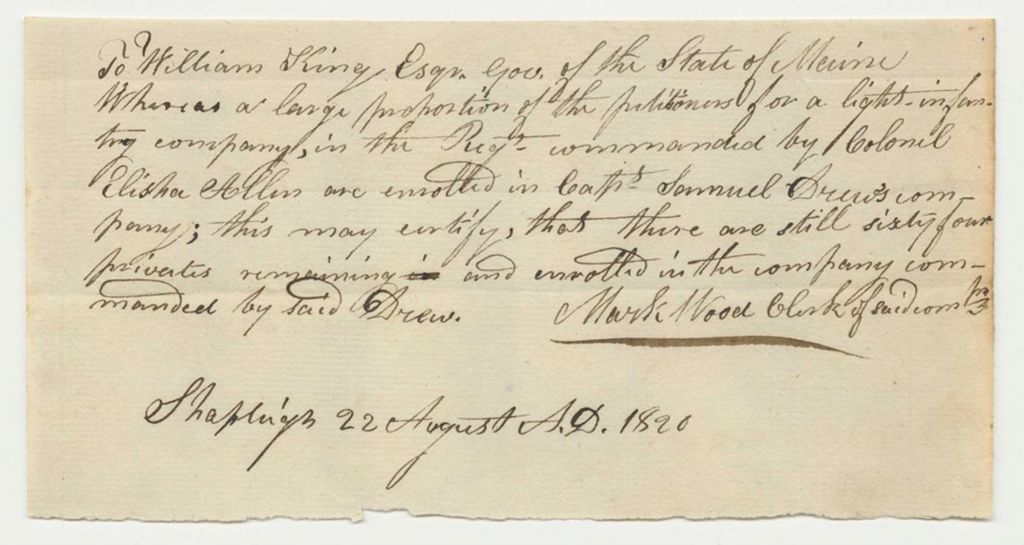 To William King Esqr. Gov. of the State of Meine
Whereas a large proportion of the petitioners for a light-infan-
try company, in the Regt. commanded by Colonel
Elisha Allen are enrolled in Capt. Samuel Drew's com-
pany; this may certify, that there are still sixty four
privates remaining in and enrolled in the company com-
manded by said Drew. Mark Wood Clerk of said comny
Shapleigh 22 August A.D. 1820